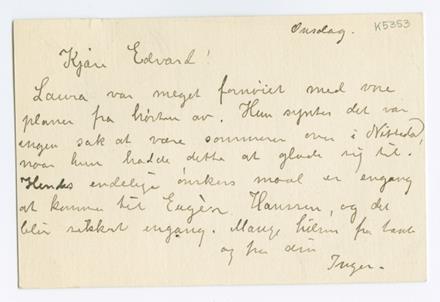 Onsdag.
K5353
Kjære Edvard!
Laura var meget fornöiet med vore
planer fra hösten av. Hun syntes det var
ingen sak at være sommeren over i Nittedal,
naar hun hadde dette at glæde sig til.
Hendes endelige önskers maal er engang
at komme til Hanssen, og det
blir sikkert engang. Mange hilsen fra tante
og fra din
Inger.